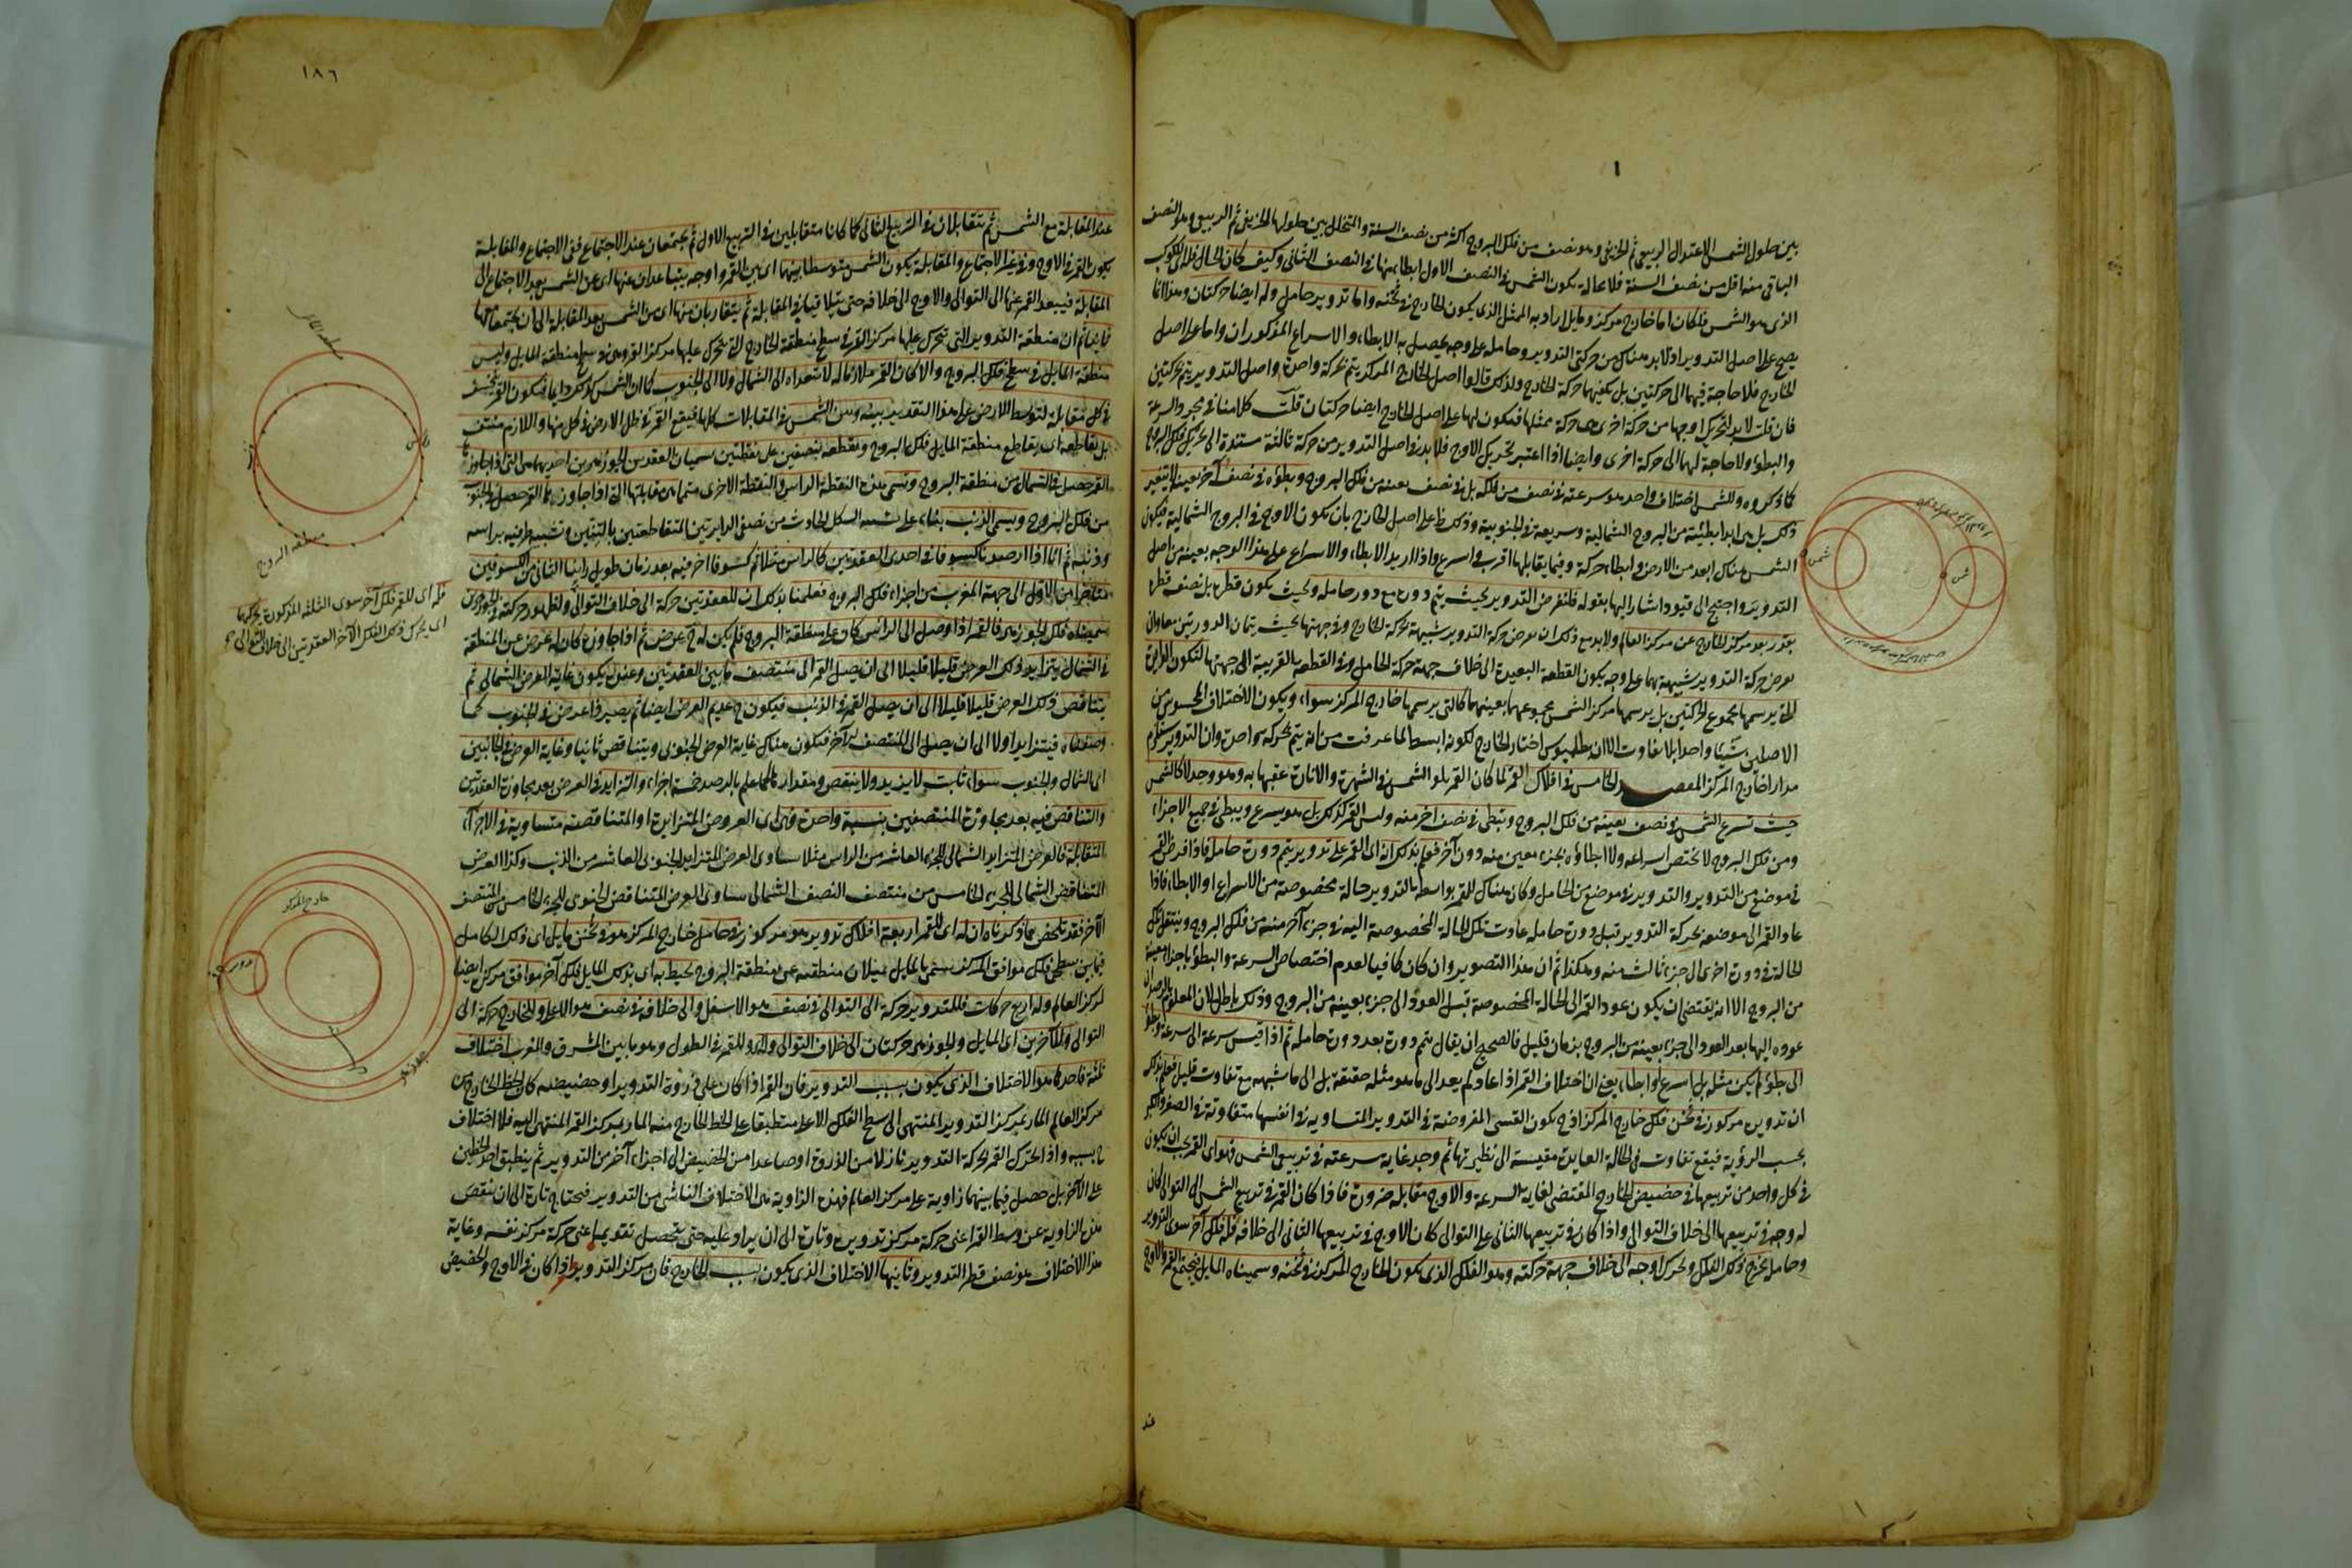 بين حلول الشمس الاعتدال الربيعى ثم الخريفى وهو نصف من فلك البروج اكثر من نصف السنة والمتخلل بين حلولها الخريفى ثم الربيعى وهو النصف
الباقى منه اقل من نصف السنة فلا محالة يكون الشمس فى النصف الاول ابطاء منها فى النصف الثانى وكيف كان الحال فلذلك الكوكب
الذى هو الشمس فلكان اما خارج مركز ومايل اراد به الممثل الذى يكون الخارج فى ثخنه واما تدوير وحامل وله ايضا حركتان وهذا انما
يصح على اصل التدوير اذ لا بد هناك من حركتى التدوير وحامله على وجه يحصل به الابطاء والاسراع المذكوران واما على اصل
الخارج فلا حاجة فيهما الى حركتين بل يكفيهما حركة الخارج ولذلك قالوا اصل الخارج المركز يتم بحركة واحدة واصل التدوير يتم بحركتين
فان قلت لا بد لتحريك اوجها من حركة اخرى هى حركة ممثلها فيكون لها على اصل الخارج ايضا حركتان قلت كلامنا فى مجرد السرعة
والبطؤ ولا حاجة لهما الى حركة اخرى وايضا اذا اعتبر تحريك الاوج فلا بد فى اصل التدوير من حركة ثالثة مستندة الى تحريك فلك البروج
كما ذكروه وللشمس اختلاف واحد هو سرعته فى نصف من فلكه بل فى نصف بعينه من فلك البروج وبطؤه فى نصف آخر بعينه لا يتغير
ذلك بل هى ابدا بطيئة من البروج الشمالية وسريعة فى الجنوبية وذلك ظ على اصل الخارج بان يكون الاوج فى البروج الشمالية فيكون
الشمس هناك ابعد من الارض وابطاء حركة وفيما يقابلها اقرب واسرع واذا اريد الابطاء والاسراع على هذا الوجه بعينه من اصل
التدوير احتيج الى قيود اشار اليها بقوله فلنفرض التدوير بحيث يتم دوره مع دور حامله وبحيث يكون قطره بل نصف قطره
بقدر بعد مركز الخارج عن مركز العالم ولا بد مع ذلك ان نفرض حركة التدوير شبيهة بحركة الخارج وفى جهتها بحيث يتمان الدورتين معا وان
نفرض حركة التدوير شبيهة بهما على وجه يكون القطعة البعيدة الى خلاف جهة حركة الحامل وفى القطعة القريبة الى جهتها لتكون الدايرة
التى يرسمها مجموع الحركتين بل يرسمها مركز الشمس بمجموعهما بعينهما كالتى يرسمها خارج المركز سواء ويكون الاختلاف المحسوس من
الاصلين شيئا واحدا بلا تفاوت الا ان بطلميوس اختار الخارج لكونه ابسط لما عرفت من انه يتم بحركة واحدة وان التدوير يستلزم
مدارا خارج المركز المقصد الخامس فى افلاك القمر لما كان القمر يتلو الشمس فى الشهرة والانارة عقبها به وهو وجد لا كالشمس
حيث تسرع الشمس فى نصف بعينه من فلك البروج وتبطئ فى نصف آخر منه وليس القمر كذلك بل هو يسرع ويبطئ فى جميع الاجزاء
ومن فلك البروج لا يختص اسراعه ولا ابطاؤه بجزء معين منه دون آخر فعلم بذلك انه اى القمر على تدوير يتم دورة حامله فاذا فرض القمر
فى موضع من التدوير والتدوير فى موضع من الحامل وكان هناك للقمر بواسطة التدوير حالة مخصوصة من الاسراع او الابطاء فاذا
عاد القمر الى موضعه بحركة التدوير قبل دورة حامله عاوت تلك الحالة المخصوصة اليه فى جزء آخر منه من فلك البروج وينتقل تلك
الحالة فى دورة اخرى الى جزء ثالث منه وهكذا ثم ان هذا التصوير وان كان كافيا لعدم اختصاص السرعة والبطؤ باجزاء معينة
من البروج الا انه يقتضى ان يكون عود القمر الى الحالة المخصوصة قبل العود الى جزء بعينه من البروج وذلك باطل لان المعلوم بالرصد ان
عوده اليها بعد العود الى جزء بعينه من البروج بزمان قليل فالصحيح ان يقال يتم دورة بعد دورة حامله ثم اذا قيس سرعة الى سرعة وبطؤ
الى بطؤ لم يكن مثله بل اسرع او ابطاء يعنى ان اختلاف القمر اذا عاد لم يعد الى ما هو مثله حقيقة بل الى ما شبهه مع تفاوت قليل فعلم بذلك
ان تدويره مركوز فى ثخن فلك خارج المركز اذ ح يكون القسى المفروضة فى التدوير المتساوية فى انفسها متفاوتة فى الصغر والكبر
بحسب الرؤية فيقع تفاوت فى الحالة العايدة مقيسة الى نظيرتها ثم وجد غاية سرعته فى تربيعى الشمس فهو اى القمر يجب ان يكون
فى كل واحد من تربيعيها فى حضيض الخارج المقتضى لغاية السرعة والاوج مقابله ضرورة فاذا كان القمر فى تربيع الشمس الى التوالى كان
له وجه فى تربيعها الى خلاف التوالى واذا كان فى تربيعها الثانى على التوالى كان الاوج فى تربيعها الثانى الى خلافه فله فلك آخر سوى التدوير
وحامله يخرج ذلك الفلك ويحرك اوجه الى خلاف جهة حركته وهو الفلك الذى يكون الخارج المركز فى ثخنه وسميناه المايل فيجتمع القمر والاوج
عند
شمس
شمس
١٨٦
عند المقابلة مع الشمس ثم يتقابلان فى التربيع الثانى كما كانا متقابلين فى التربيع الاول ثم يجتمعان عند الاجتماع ففى الاجتماع والمقابلة
يكون القمر فى الاوج وفى غير الاجتماع والمقابلة يكون الشمس متوسطا بينهما اى بين القمر واوجه يتباعدان عنها اى عن الشمس بعد الاجتماع الى
المقابلة فيبعد القمر عنها الى التوالى والاوج الى خلافه حتى يتلاقيا فى المقابلة ثم يتقاربان منها اى من الشمس بعد المقابلة الى ان يجتمعا معها
ثم ان منطقة التدوير التى تحرك عليها مركز القمر فى سطح منطقة الخارج التى يتحرك عليها مركز التدوير وهى فى سطح منطقة المايل وليس
منطقة المايل فى سطح فلك البروج والا لكان القمر ملازما له لا يتعداه الى الشمال ولا الى الجنوب كما ان الشمس كذلك دايما فيكون القمر
فى كل مقابلة لتوسط الارض على هذا التقدير بينه وبين الشمس فى المقابلات كلها فيقع القمر فى ظل الارض فى كل منها واللازم منتف
بل يقاطعه اى يقاطع منطقة المايل فلك البروج ويقطعه بنصفين على نقطتين تسميان العقدتين والجوزهرين احديهما هى التى اذا جاوزها
القمر حصل فى الشمال من منطقة البروج وتسمى هذه النقطة الراس والنقطة الاخرى منهما هى مقابلتها التى اذا جاوزها القمر حصل فى الجنوب
من فلك البروج ويسمى الذنب بناء على تشبيه الشكل الحادث من نصفى الدايرتين المتقاطعتين بالتنين وتشبيه طرفيه براسه
وذنبه ثم انا اذا ارصدنا كسوفا فى احدى العقدتين كالراس مثلا ثم كسوفا اخر فيه بعد زمان طويل راينا الثانى من الكسوفين
متاخرا من الاول الى جهة المغرب من اجزاء فلك البروج فعلمنا بذلك ان للعقدتين حركة الى خلاف التوالى
سميناه فلك الجوزهر فالقمر اذا وصل الى الراس كان على منطقة البروج فلم يكن له ح عرض ثم اذا جاوزه كان له عرض عن المنطقة
فى الشمال يتزايد ذلك العرض قليلا قليلا الى ان يصل القمر الى منتصف ما بين العقدتين وعنده يكون غاية العرض الشمالى ثم
يتناقص ذلك العرض قليلا قليلا الى ان يصل القمر الى الذنب فيكون ح عديم العرض ايضا ثم يصير ذا عرض فى الجنوب كما
وصفناه فيتزايد اولا الى ان يصل الى المنتصف الآخر فيكون هناك غاية العرض الجنوبى ويتناقص ثانيا وغاية العرض فى الجانبين
اى الشمال والجنوب سواء ثابت لا يزيد ولا ينقص ومقدارها كما علم بالرصد خمسة اجزاء والتزايد فى العرض بعد مجاوزة العقدتين
والتناقص فيه بعد مجاوزة المنتصفين بنسبة واحدة وهى اى العروض المتزايدة والمتناقصة متساوية فى الاجزاء
المتقابلة فالعرض المتزايد الشمالى للجزء العاشر من الراس مثلا يساوى العرض المتزايد الجنوبى للعاشر من الذنب وكذا العرض
المتناقص الشمالى للجزء الخامس من منتصف النصف الشمالى يساوى العرض المتناقص الجنوبى للجزء الخامس من المنتصف
الآخر فقد تلخص مما ذكرناه ان له اى للقمر اربعة افلاك تدوير هو مركوز فى حامل خارج المركز هو فى ثخن مايل اى ذلك الحامل
فيما بين سطحى فلك موافق المركز يسمى بالمايل لميلان منطقته عن منطقة البروج يحيط به اى بذلك المايل فلك آخر موافق مركزه ايضا
لمركز العالم وله اربع حركات فللتدوير حركة الى التوالى فى نصف هو الاسفل والى خلافه فى نصف هو الاعلى وللخارج حركة الى
التوالى وللآخرين اى المايل والجوزهر حركتان الى خلاف التوالى وللقمر فى الطول وهو ما بين المشرق والمغرب اختلافات
ثلثة فاحدها هو الاختلاف الذى يكون بسبب التدوير فان القمر اذا كان على ذروة التدوير او حضيضه كان الخط الخارج من
مركز العالم المار بمركز التدوير المنتهى الى سطح الفلك الاعلى منطبقا على الخط الخارج منه المار بمركز القمر المنتهى اليه فلا اختلاف
ح بسببه واذا تحرك القمر بحركة التدوير نازلا من الذروة او صاعدا من الحضيض الى اجزاء آخر من التدوير ثم ينطبق احد الخطين
على الآخر بل حصل فيما بينهما زاوية على مركز العالم فهذه الزاوية هى الاختلاف الناشئ من التدوير فيحتاج تارة الى ان ينقص
هذه الزاوية عن وسط القمر اعنى حركة مركز تدويره وتارة الى ان يزاد عليه حتى يتحصل تقويمه اعنى حركة مركز نفسه وغاية
هذا الاختلاف هو نصف قطر التدوير وثانيها الاختلاف الذى يكون بسبب الخارج فان مركز التدوير اذا كان فى الاوج والحضيض
منطقة المايل
راس
ذنب
منطقة البروج
فله اى للقمر فلك آخر سوى الثلثة المذكورة يحركهما
اى يحرك ذلك الفلك الآخر العقدتين الى خلاف التوالى
خارج المركز
تدوير
جوزهر